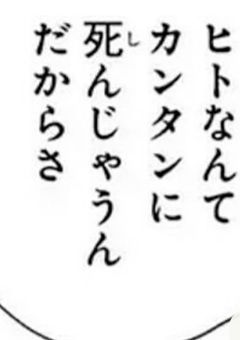 ヒトなんて
カンタンに
死んじゃうん
だからさ